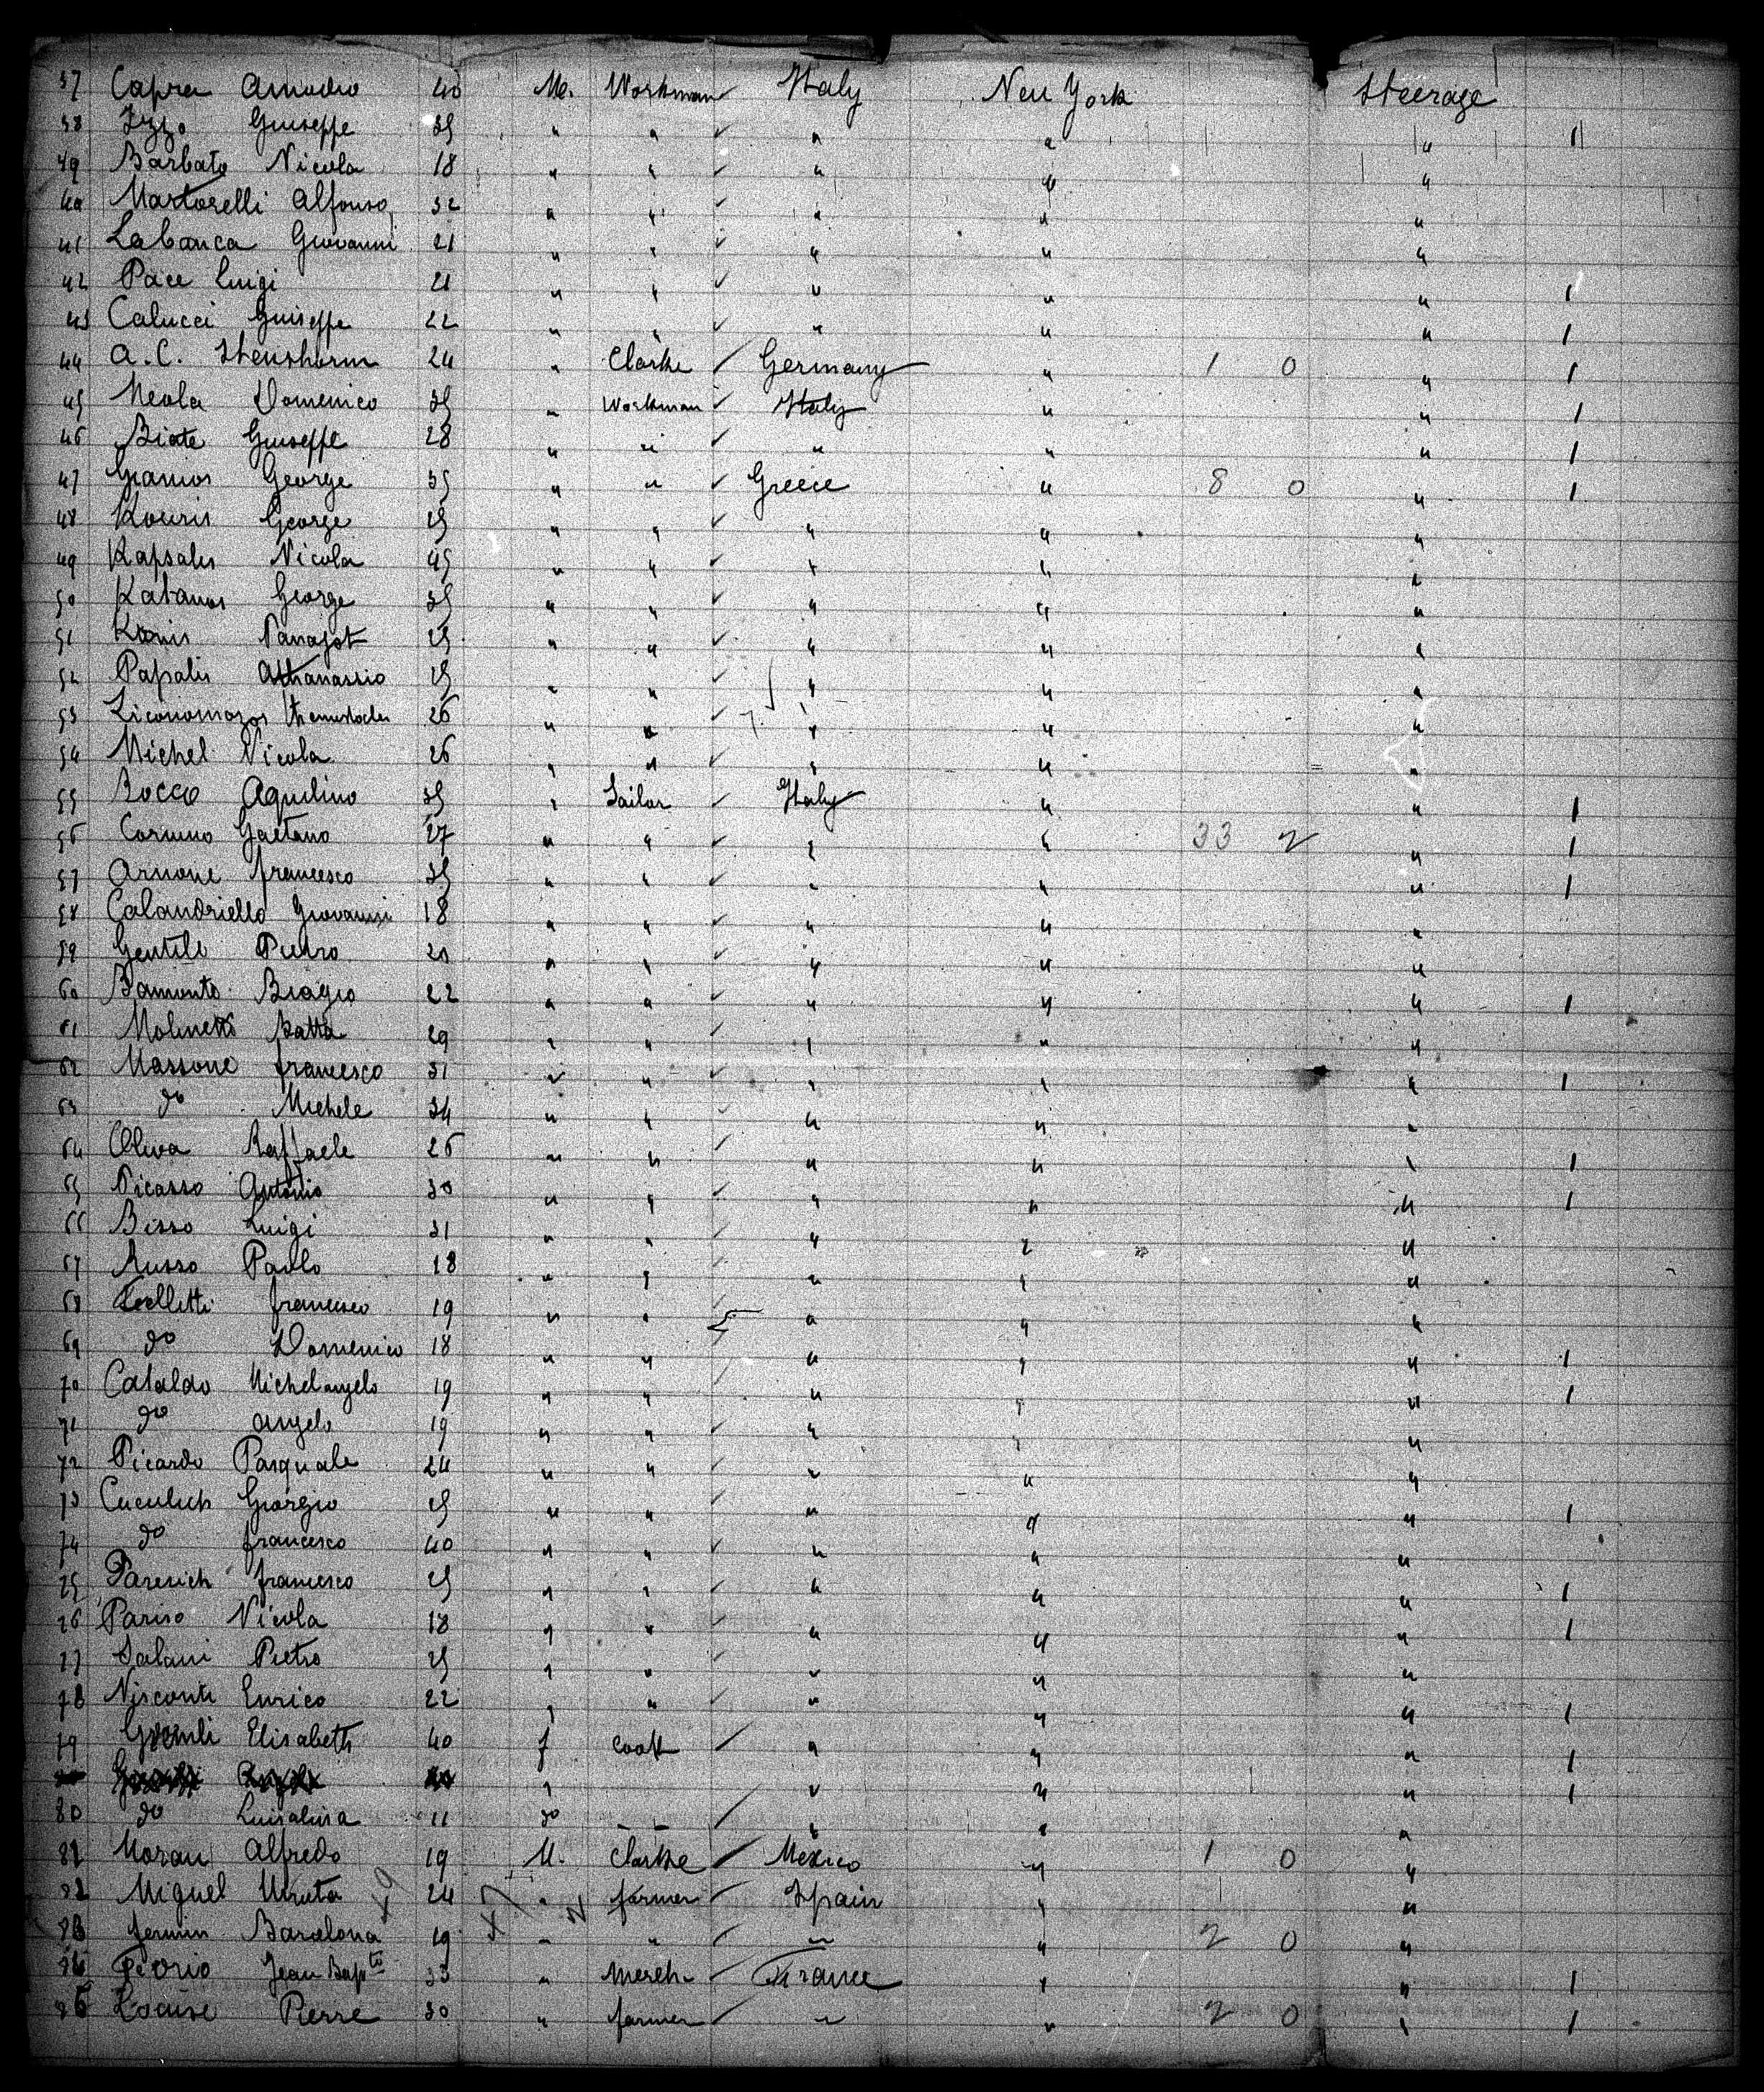 37 Capra Amadio 40 M. Workman Italy New York Steerage
38 Izzo Giuseppe 35 " " " " " 1
39 Barbato Nicola 18 " " " " "
40 Martorelli Alfonso 32 " " " " "
41 Labanca Giovanni 21 " " " " "
42 Pace Luigi 21 " " " " " 1
43 Calucci Guiseppe 22 " " " " " 1
44 A. C. 24 " Clarke Germany " 1 0 " 1
45 Meola Domenico 35 " Workman Italy " " 1
46 Biate Giuseppe 28 " " " " " 1
47 George 35 " " Greece " 8 0 " 1
48 Kouris George 25 " " " " "
49 Kapsales Nicola 45 " " " " "
50 Katanos George 35 " " " " "
51 Panajot 25 " " " " "
52 Papalis Athanassio 25 " " " " "
53 Themistocles 26 " " " " "
54 Michel Nicola 26 " " " " "
55 Rocco Aquilino 35 " Sailor Italy " " 1
56 Gaetano 27 " " " " 33 2 " 1
57 Arnone francesco 35 " " " " " 1
58 Calandriello Giovanni 18 " " " " "
59 Gentile Pietro 20 " " " " "
60 Bamonte Biagio 22 " " " " " 1
61 Molinetti Batta 29 " " " " "
62 Massone francesco 31 " " " " " 1
63 do Michele 34 " " " " "
64 Oliva Raffaele 26 " " " " " 1
65 Picasso Antonio 30 " " " " " 1
66 Bisso Luigi 31 " " " " "
67 Russo Paolo 18 " " " " "
68 francesco 19 " " " " "
69 do Domenico 18 " " " " " 1
70 Cataldo Michelangelo 19 " " " " " 1
71 do Angelo 19 " " " " "
72 Picardo Pasquale 24 " " " " "
73 Cuculich Giorgio 25 " " " " " 1
74 do francesco 40 " " " " "
75 francesco 25 " " " " " 1
76 Pariso Nicola 18 " " " " " 1
77 Salani Pietro 25 " " " " "
78 Visconti Enrico 22 " " " " " 1
79 Elisabeth 40 f Cook " " " 1
" " " " 1
80 do 11 do " " "
81 Moran Alfredo 19 M. Clarke Mexico " 1 0 "
82 Miguel 24 " farmer Spain " "
83 fermin Barcelona 19 " " " " 2 0 "
84 Jean Bapte 33 " Merch. France " " 1
85 Louise Pierre 30 " farmer " " 2 0 " 1